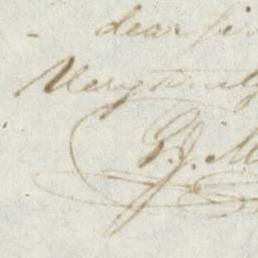 - dear Sir
Very truly
G. J. M